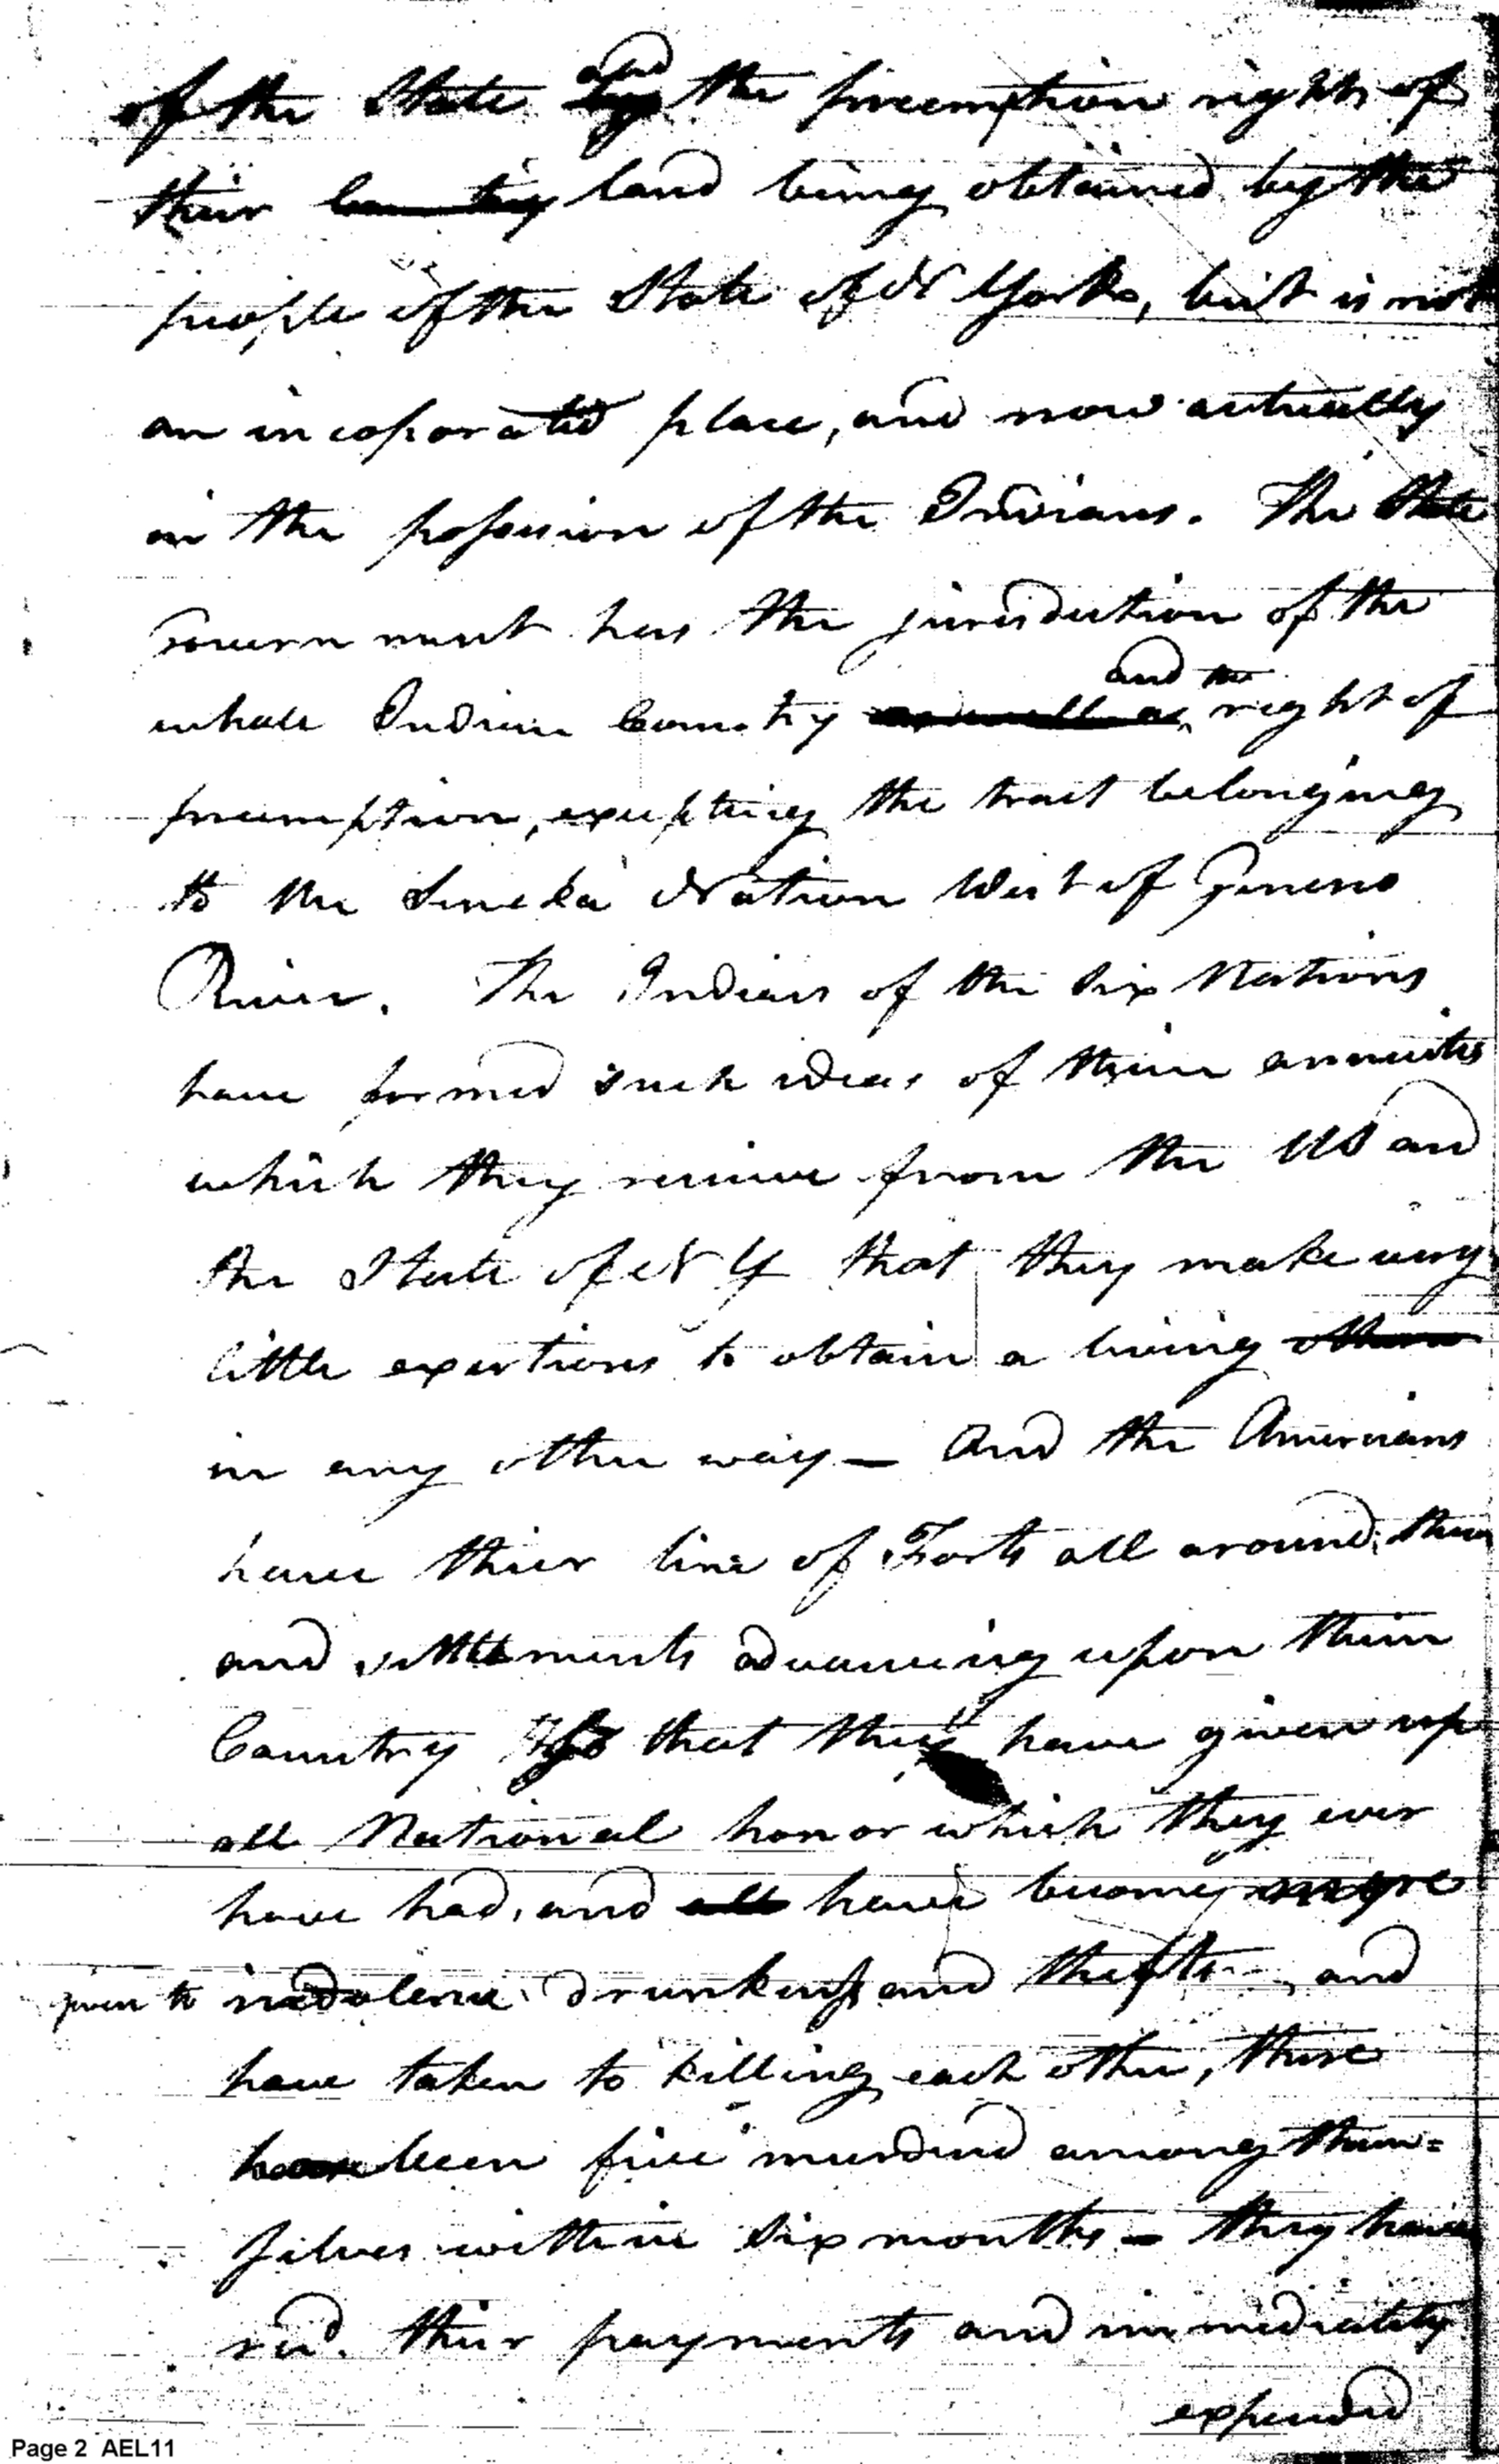 of the State and the preemption rights of
their land being obtained by the
people of the State of N York, but is not
an incoporated place, and now actually
in the possession of the Indians. The State
Government has the jurisdiction of the
whole Indian Country as well as and the right of
preemption, excepting the tract belonging
to the Seneka Nation West of Geneseo
River. The Indians of the Six Nations
have formed such ideas of their annuites
which they recieve from the US and
the State of N Y that they make very
little exertions to obtain a living other
in any other way — And the Americans
have thier line of Forts all around them
and settlements advancing upon their
Country so that they have given up
all National honor which they ever
have had, and all have become more
given to indolence drunkenss and thefts, and
have taken to killing each other, there
have been five murdered among them=
selves within six months – they have
recd. their payments and immediately
expended
Page 2 AEL11